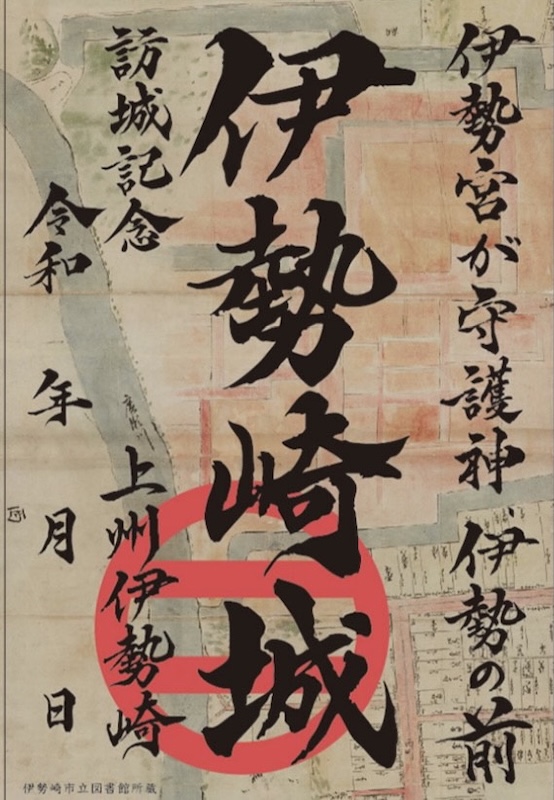 伊勢宮が守護神 伊勢の前
伊勢崎城
訪城記念
上州伊勢崎
令和 年 月 日
伊勢崎市立図書館所蔵